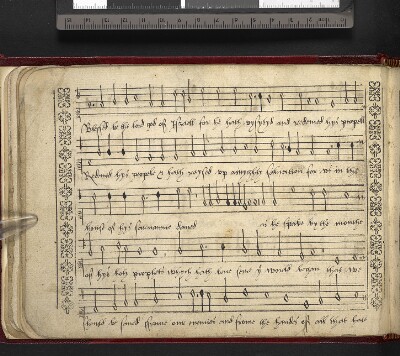 Blessed be the lord god of Israell for he hath vysyted and redemed hys people
Redemed hys people & hath raysed up a myghty salvation for us in the
house of hys servaunte david as he spake by the mouthe
of hys holy prophets which hath bene sens the world began that we
should be saved frome our enemies and frome the handes of all that hate